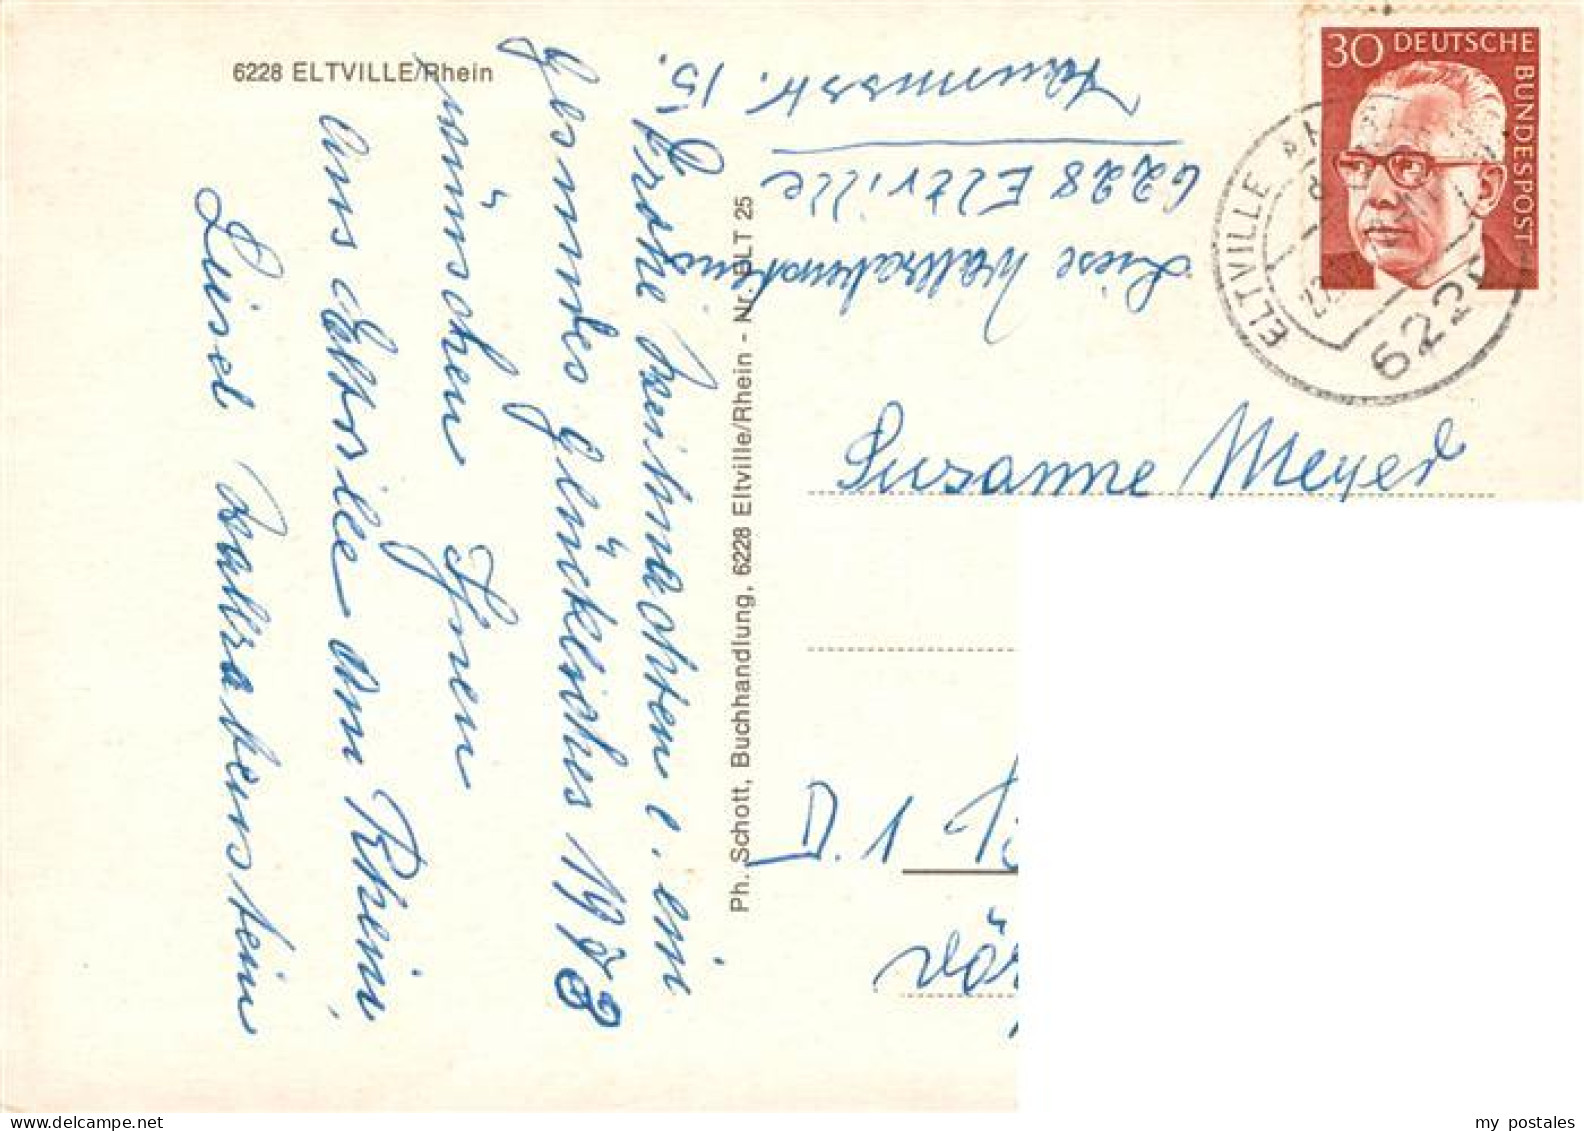 6228 ELTVILLE/Rhein
Frohe Weihnachten u. ein
gesundes glückliches 1973
wünschen Ihnen
aus Eltville am Rhein
Liesel Wallrabenstein
Ph. Schott, Buchhandlung, 6228 Eltville/Rhein - Nr. ELT 25
Liese Wallrabenstein
6228 Eltville
Taunusstr. 15.
30 DEUTSCHE
BUNDESPOST
ELTVILLE
622
Susanne Meyer
D.1